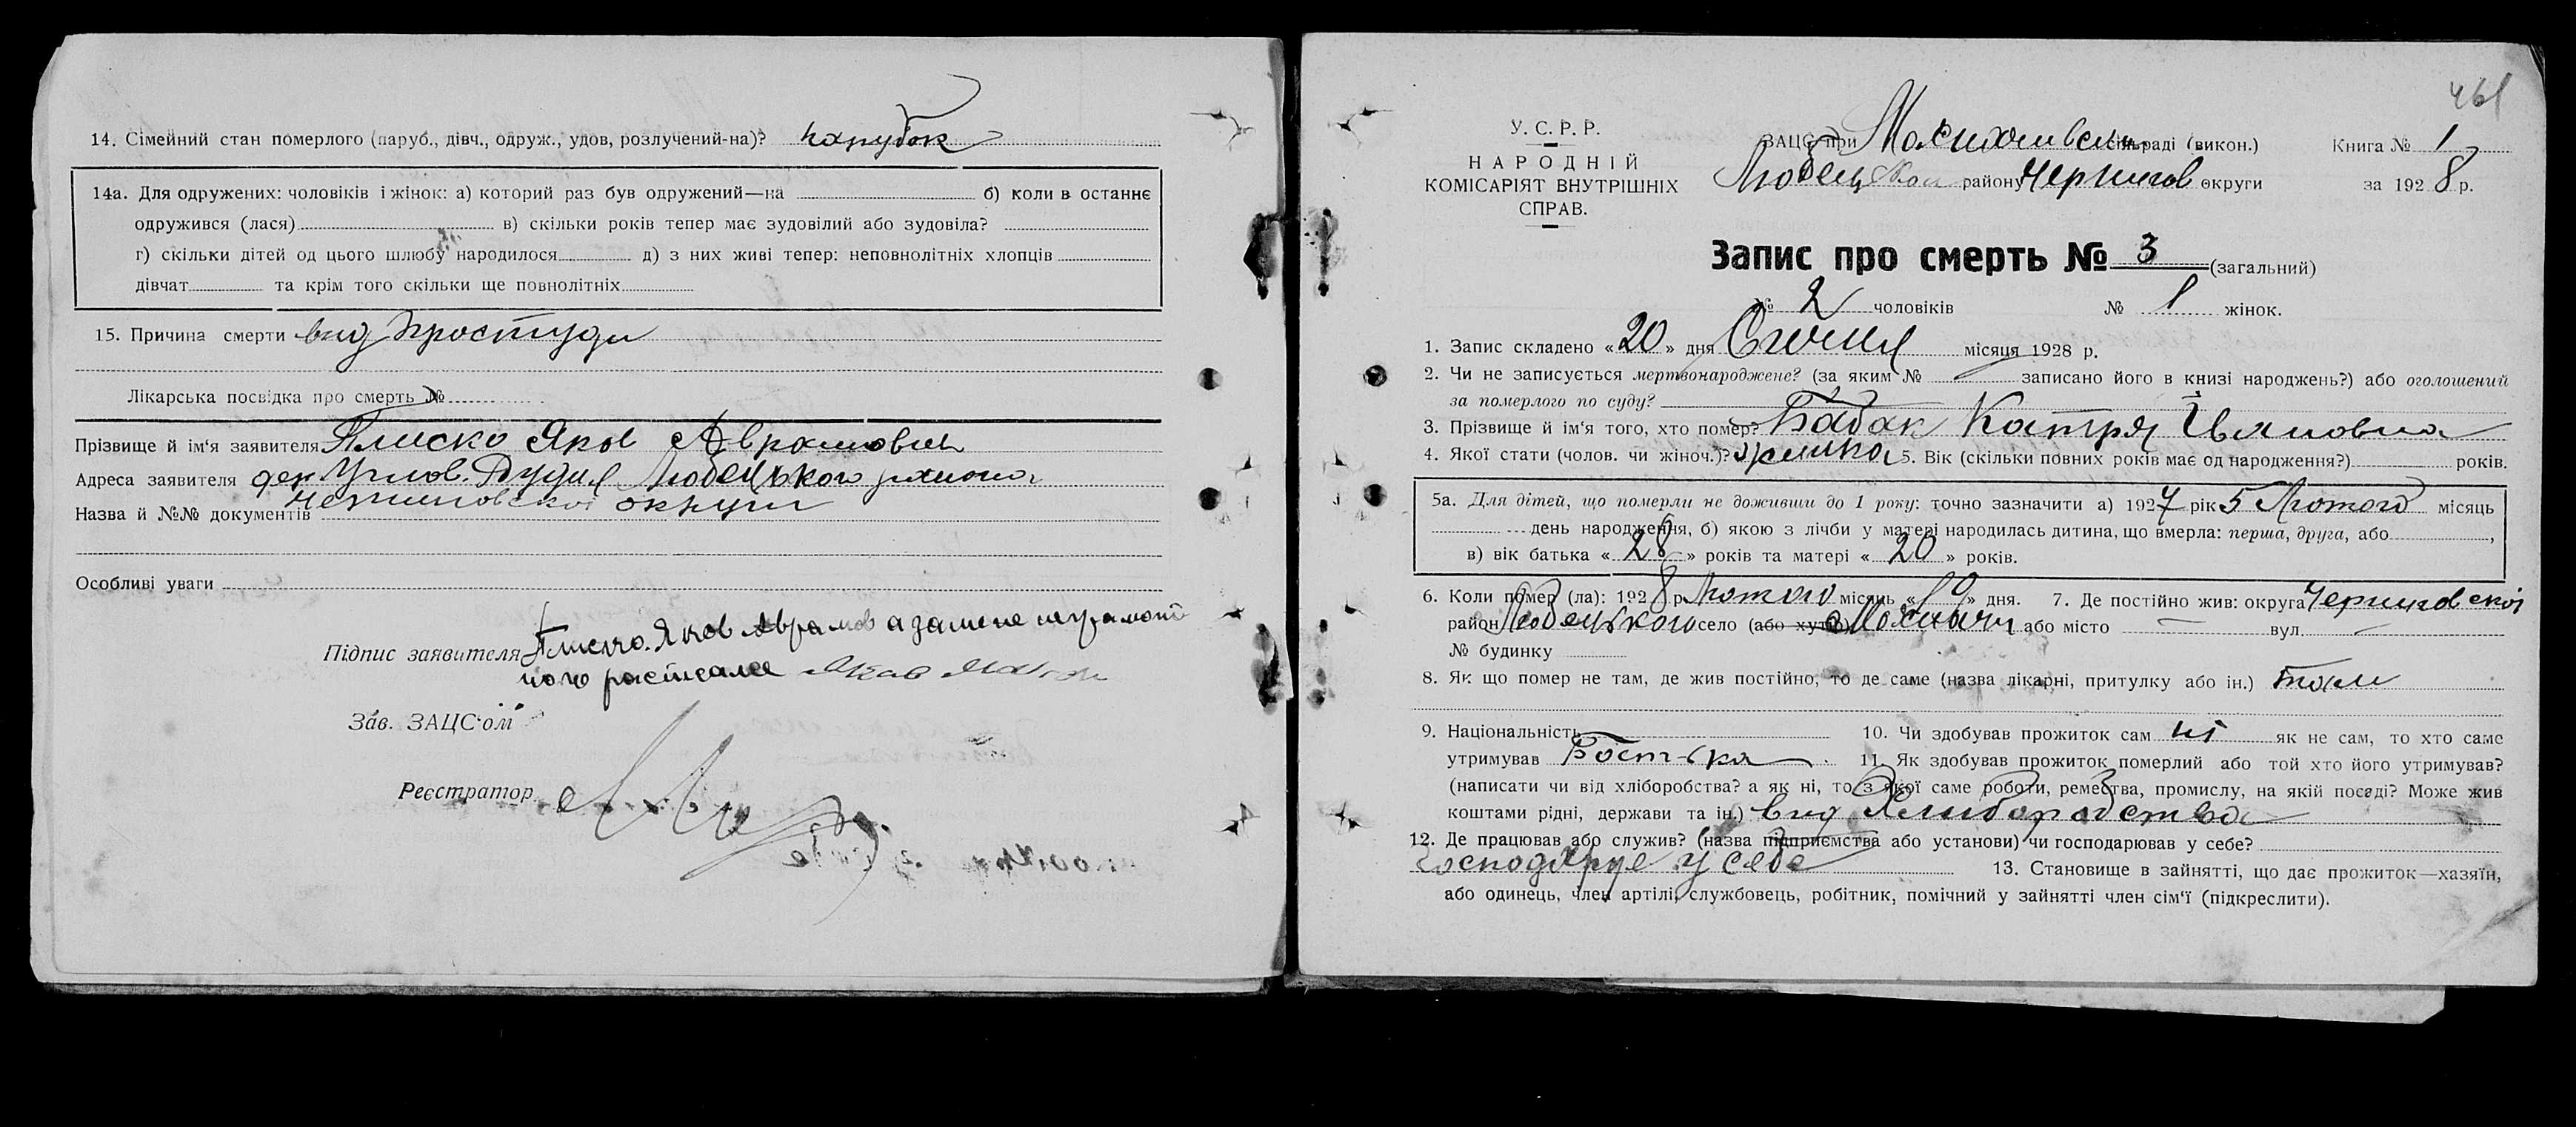 14. Сімейний стан померлого (паруб., дівч., одруж., удов, розлучений-на)? парубок
14а. Для одружених: чоловіків і жінок: а) который раз був одружений—на б) коли в останнє
одружився (лася) в) скільки років тепер має зудовілий або зудовіла?
г) скільки дітей од цього шлюбу народилося д) з них живі тепер: неповнолітніх хлопців
дівчат та крім того скільки ще повнолітніх
15. Причина смерти вид простуди
Лікарська посвідка про смерть №
Прізвище й ім'я заявителя Плиско Яков Аврамович
Адреса заявителя дер Углов. Рудня Любецького района
Черниговской округи
Назва й №№ документів
Особливі уваги
Підпис заявителя Плиско. Яков Аврамов а за мене неграмот
ного расписался
Зав. ЗАЦС'ом
Реєстратор
461
У. С. Р. Р.
НАРОДНІЙ
КОМІСАРІЯТ ВНУТРІШНІХ
СПРАВ.
ЗАЦС при сільраді (викон.)
Любецкой району Чернигов округи
Книга № 1
за 1928 р.
Запис про смерть № 3 (загальний)
№ 2 чоловіків № 1 жінок.
1. Запис складено «20» дня Січня місяця 1928 р.
2. Чи не записується мертвонароджене? (за яким № записано його в книзі народжень?) або оголошений
за померлого по суду?
3. Прізвище й ім'я того, хто помер? Бабак Катря Ивановна
4. Якої стати (чолов. чи жіноч.)? 5. Вік (скільки повних років має од народження?) років.
5а. Для дітей, що померли не доживши до 1 року: точно зазначити а) 1927 рік 5 Лютого місяць
день народження, б) якою з лічби у матері народилась дитина, що вмерла: перша, друга, або ,
в) вік батька «28» років та матері «20» років.
6. Коли помер (ла): 1928 р Лютого місяць «10» дня. 7. Де постійно жив: округа Черниговской
район Любецького село (або хутір) Мохначи або місто — вул. —
№ будинку
8. Як що помер не там, де жив постійно, то де саме (назва лікарні, притулку або ін.) там
9. Національність 10. Чи здобував прожиток сам ні як не сам, то хто саме
утримував Бость-ка 11. Як здобував прожиток померлий або той хто його утримував?
(написати чи від хліборобства? а як ні, то з якої саме роботи, ремества, промислу, на якій посаді? Може жив
коштами рідні, держави та ін.) вид Хлиборобства
12. Де працював або служив? (назва підприємства або установи) чи господарював у себе?
Господарує у себе 13. Становище в зайнятті, що дає прожиток—хазяїн,
або одинець, член артілі, службовець, робітник, помічний у зайнятті член сім'ї (підкреслити).